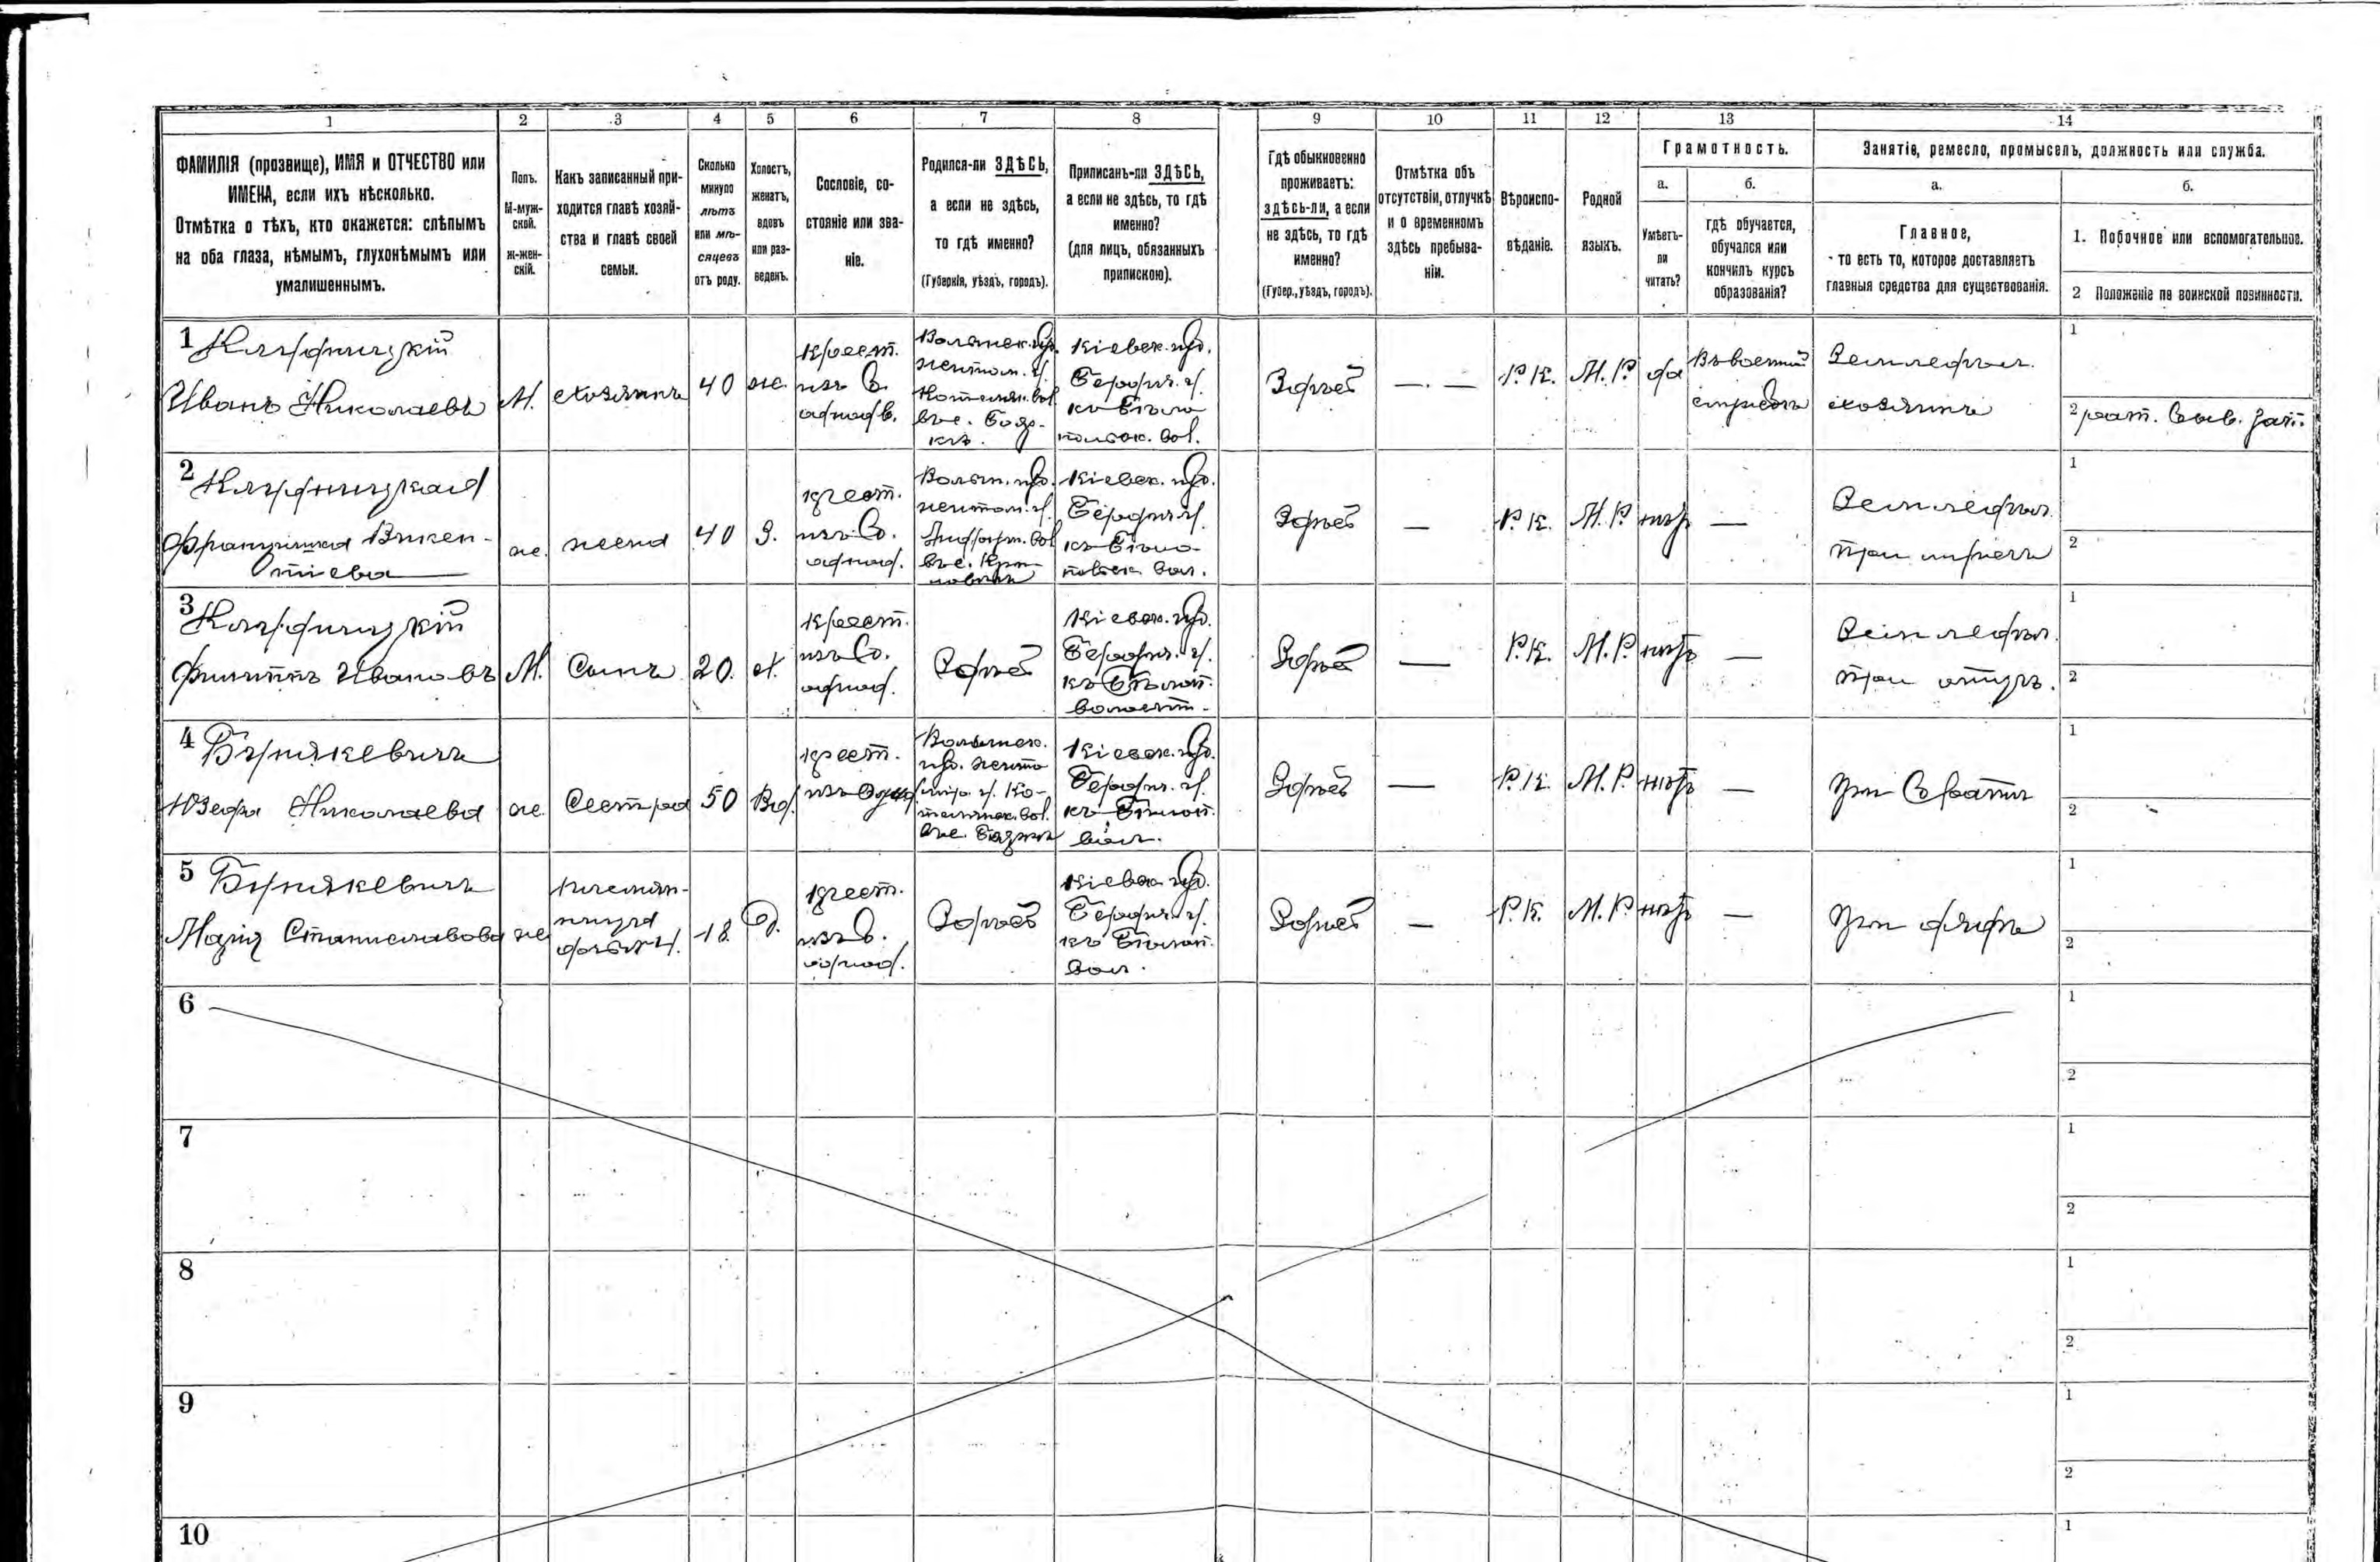 1
2
3
4
5
6
7
8
9
10
11
12
13
14
ФАМИЛІЯ (прозвище), ИМЯ и ОТЧЕСТВО или
ИМЕНА, если ихъ нѣсколько.
Отмѣтка о тѣхъ, кто окажется: слѣпымъ
на оба глаза, нѣмымъ, глухонѣмымъ или
умалишеннымъ.
Полъ.
М-муж-
ской.
ж-жен-
скій.
Какъ записанный при-
ходится главѣ хозяй-
ства и главѣ своей
семьи.
Сколько
минуло
лѣтъ
или мѣ-
сяцевъ
отъ роду.
Холостъ,
женатъ,
вдовъ
или раз-
веденъ.
Сословіе, со-
стояніе или зва-
ніе.
Родился-ли ЗДѢСЬ,
а если не здѣсь,
то гдѣ именно?
(Губернія, уѣздъ, городъ).
Приписанъ-ли ЗДѢСЬ,
а если не здѣсь, то гдѣ
именно?
(для лицъ, обязанныхъ
припискою).
Гдѣ обыкновенно
проживаетъ:
здѣсь-ли, а если
не здѣсь, то гдѣ
именно?
(Губер., уѣздъ, городъ).
Отмѣтка объ
отсутствіи, отлучкѣ
и о временномъ
здѣсь пребыва-
ніи.
Вѣроиспо-
вѣданіе.
Родной
языкъ.
Грамотность.
а.
Умѣетъ-
ли
читать?
б.
гдѣ обучается,
обучался или
кончилъ курсъ
образованія?
Занятіе, ремесло, промыселъ, должность или служба.
а.
Главное,
то есть то, которое доставляетъ
главныя средства для существованія.
б.
1. Побочное или вспомогательное.
2 Положеніе по воинской повинности.
1
Иванъ Николаевъ
М.
хозяинъ
40
же.
крест.
изъ б.
однодв.
Волынск. губ.
житом. у.
въ с.
Кіевск. губ.
Бердич. у.
къ Бѣло
польск. вол.
Здѣсь
— —
Р. К.
М. Р.
да
Въ военной
службѣ
Земледѣл.
хозяинъ
1
2 рат.
2
Францишка Викен-
тіева
же.
жена
40
З.
крест.
изъ б.
однод.
Волын. губ.
житом. у.
вол
въ с.
Кіевск. губ.
Бердич. у.
къ Бѣло-
польск. вол.
Здѣсь
—
Р. К.
М. Р.
нѣтъ
—
Земледѣл.
при мужѣ
1
2
3
Филиппъ Ивановъ
М.
Сынъ
20.
х.
крест.
изъ б.
однод.
Здѣсь
Кіевск. губ.
Бердич. у.
къ Бѣлоп.
волости
Здѣсь
—
Р. К.
М. Р.
нѣтъ
—
Земледѣл.
при отцѣ.
1
2
4
Юзефа Николаева
же.
Сестра
50
Вд.
крест.
изъ однод
Волынск.
губ. жито
мир. у. Ко-
вол.
въ с.
Кіевск. губ.
Бердич. у.
къ Бѣлоп.
вол.
Здѣсь
—
Р. К.
М. Р.
нѣтъ
—
при братѣ
1
2
5
Марія Станиславова
же
племян-
ница
18.
Д.
крест.
изъ б.
однод.
Здѣсь
Кіевск. губ.
Бердич. у.
къ Бѣлоп.
вол.
Здѣсь
—
Р. К.
М. Р.
нѣтъ
—
при дядѣ
1
2
6
1
2
7
1
2
8
1
2
9
1
2
10
1